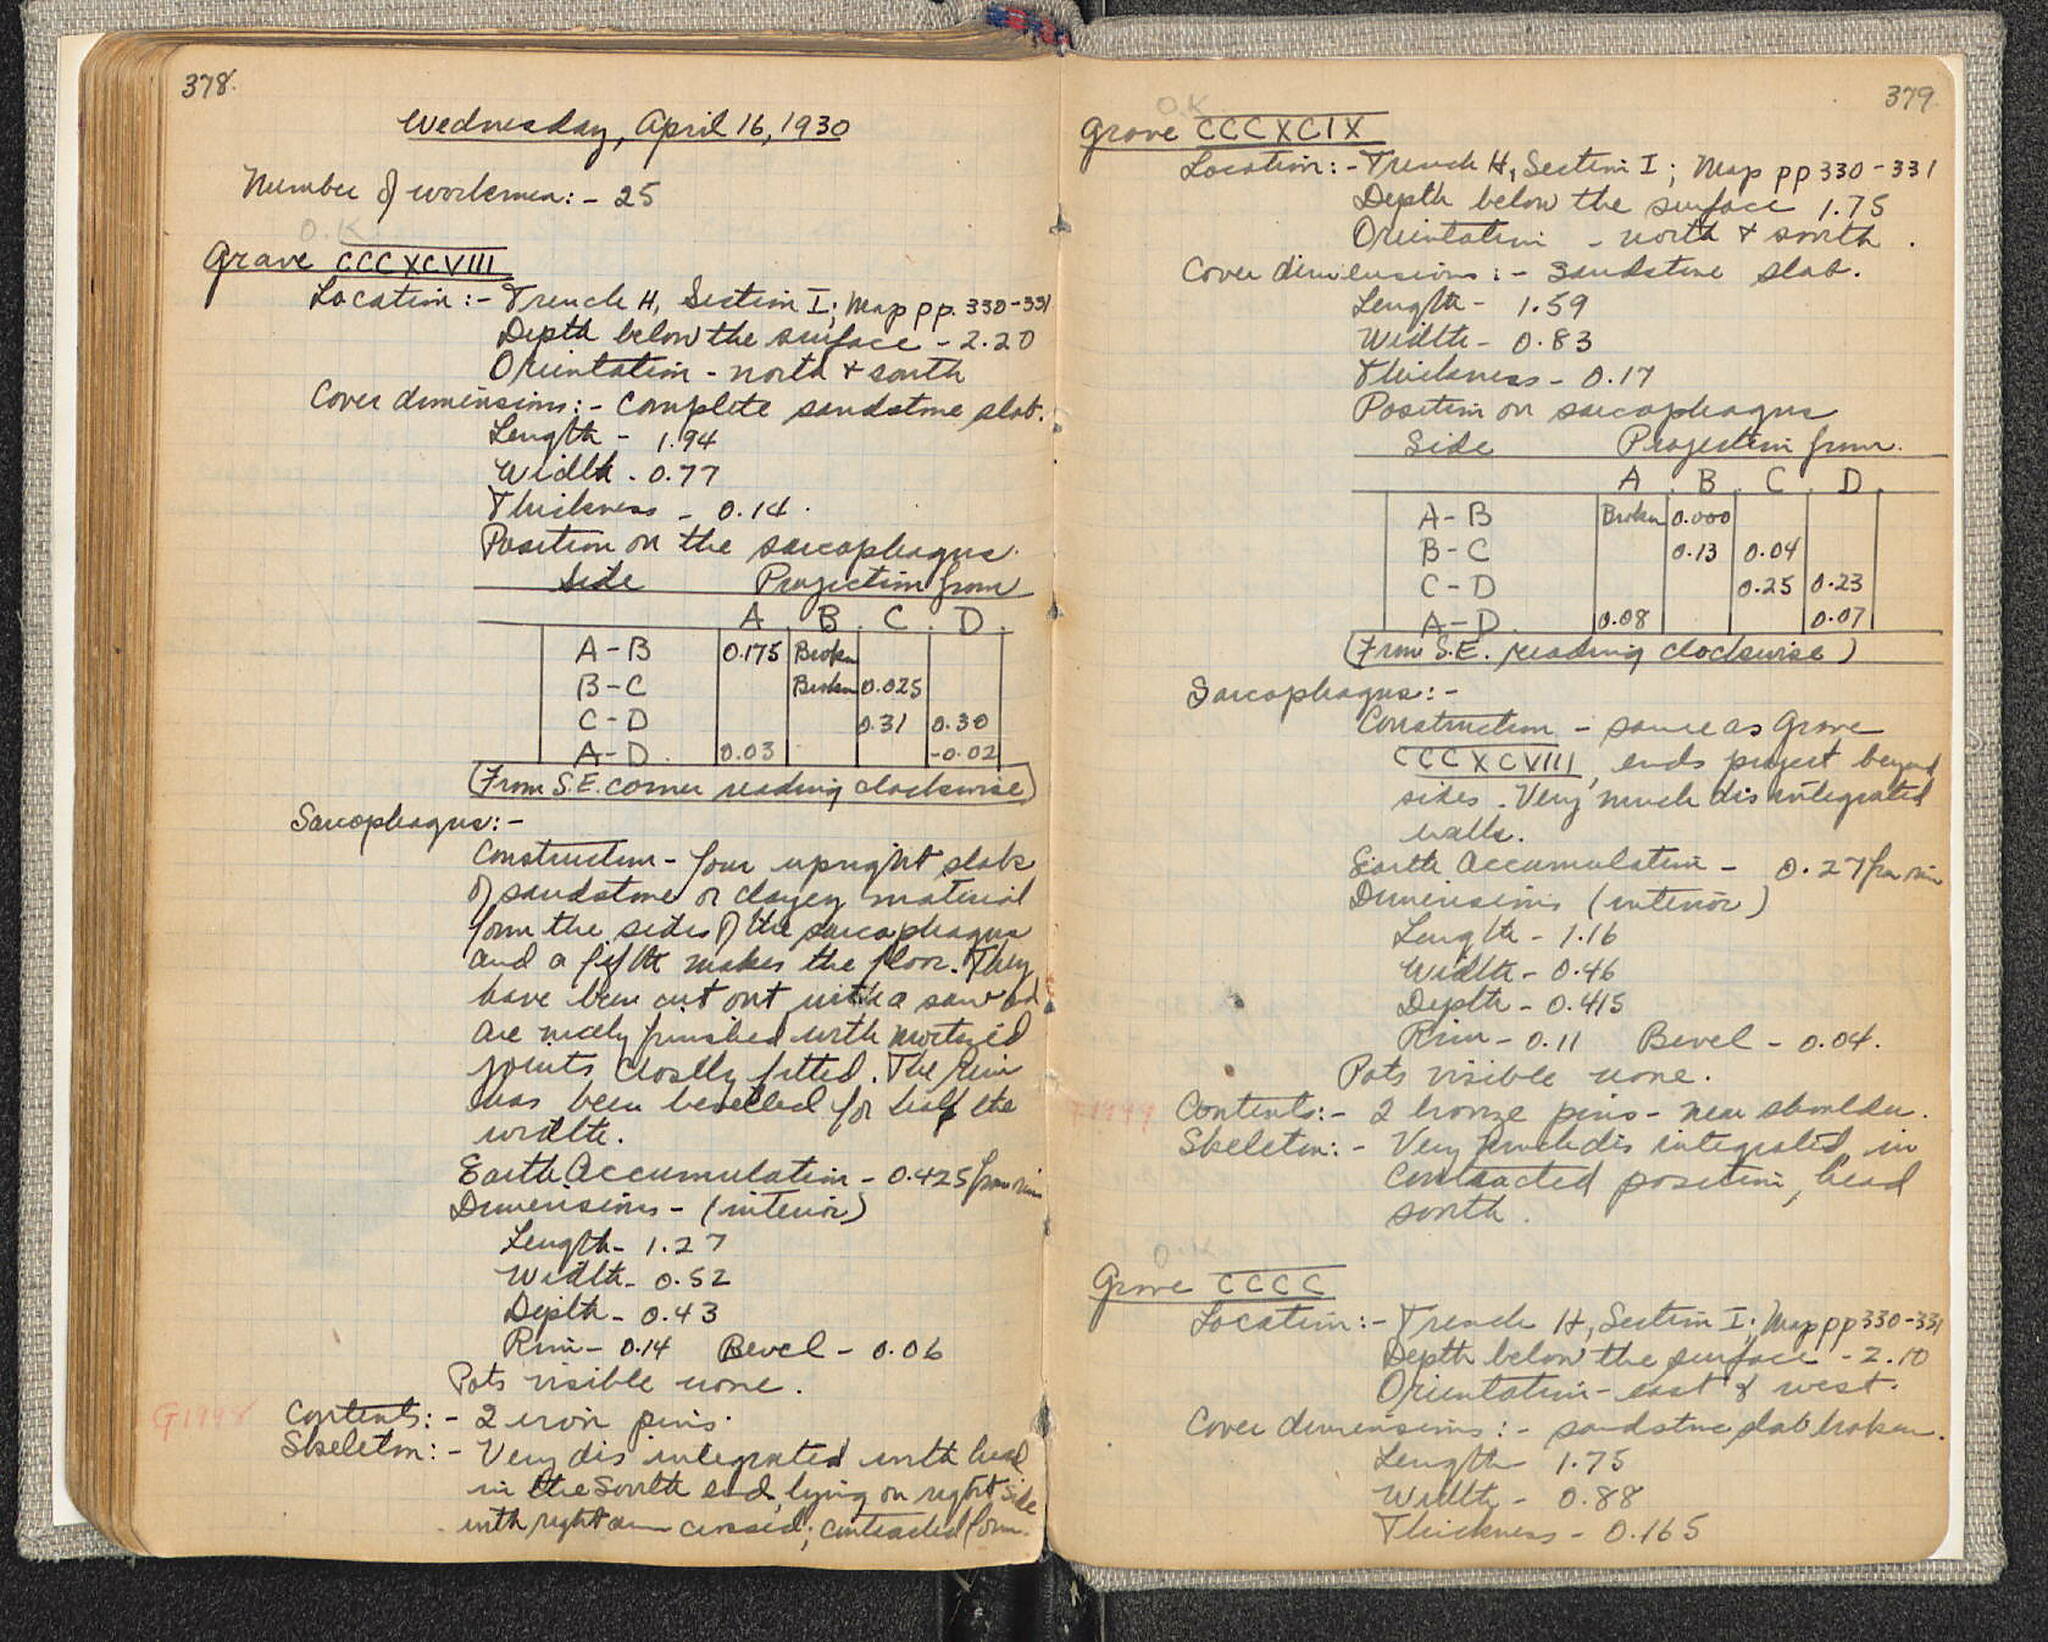 378.
Wednesday, April 16, 1930
Number of workmen: - 25
O.K.
Grave CCCXCVIII
Location: - Trench H, Section I; Map pp. 330-331
Depth below the surface - 2.20
Orientation - north & south
Cover dimensions: - Complete sandstone slab.
Length - 1.94
Width - 0.77
Thickness - 0.14.
Position on the sarcophagus.
Side Projection from
A B C D
A-B 0.175 Broken
B-C Broken 0.025
C-D 0.31 0.30
A-D. 0.03 -0.02
(From S.E. corner reading clockwise)
Sarcophagus: -
Construction - four upright slabs
of sandstone or clayey material
form the sides of the sarcophagus
and a fifth makes the floor. They
have been cut out with a saw and
are nicely finished with mortised
joints closely fitted. The rim
has been bevelled for half the
width.
Earth Accumulation - 0.425 from rim
Dimensions - (interior)
Length - 1.27
Width - 0.52
Depth - 0.43
Rim - 0.14 Bevel - 0.06
Pots visible none.
G1998 Contents: - 2 iron pins.
Skeleton: - Very disintegrated with head
in the South end, lying on right side
with right arm crossed; contracted form.
379
O.K.
Grave CCCXCIX
Location: - Trench H, Section I; Map pp 330-331
Depth below the surface 1.75
Orientation - north & south.
Cover dimensions: - sandstone slab.
Length - 1.59
Width - 0.83
Thickness - 0.17
Position on sarcophagus
Side Projection from.
A B C D
A-B Broken 0.000
B-C 0.13 0.04
C-D 0.25 0.23
A-D. 0.08 0.07
(From S.E. reading clockwise)
Sarcophagus: -
Construction - same as Grave
CCCXCVIII, ends project beyond
sides. Very much disintegrated
walls.
Earth Accumulation - 0.27 from rim
Dimensions (interior)
Length - 1.16
Width - 0.46
Depth - 0.415
Rim - 0.11 Bevel - 0.04.
Pots visible none.
G1999 Contents: - 2 bronze pins - near shoulder.
Skeleton: - Very much disintegrated, in
contracted position, head
south.
O.K.
Grave CCCC
Location: - Trench H, Section I; Map pp 330-331
Depth below the surface - 2.10
Orientation - east & west.
Cover dimensions: - sandstone slab broken.
Length 1.75
Width - 0.88
Thickness - 0.165